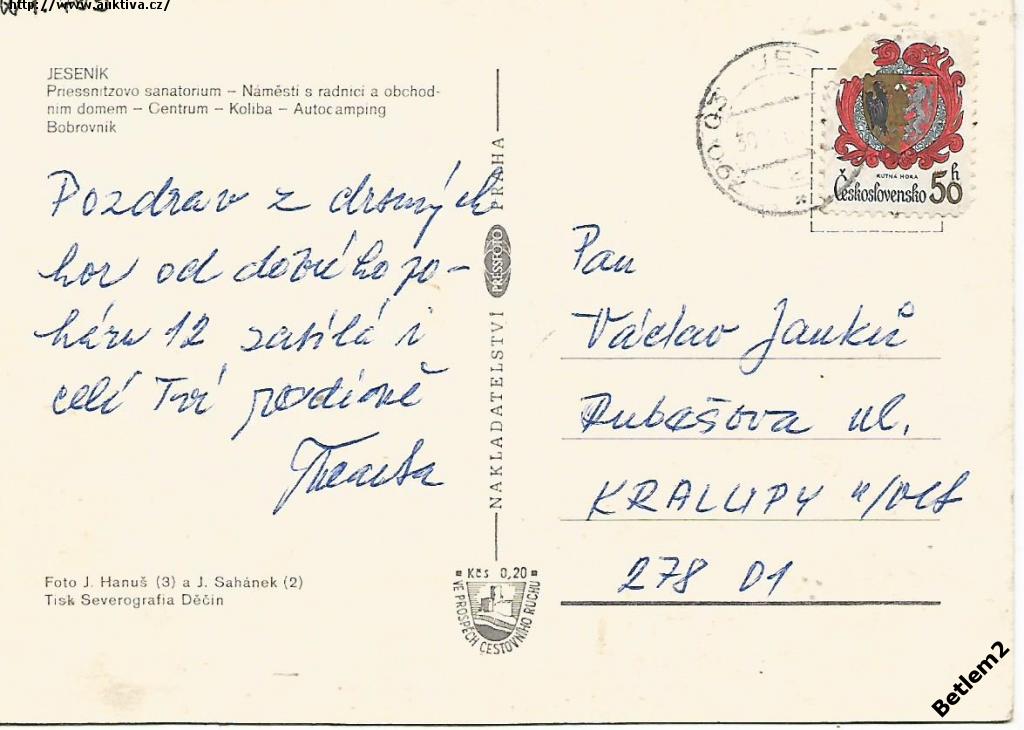 http://www.auktiva.cz/
JESENÍK
Priessnitzovo sanatorium – Náměstí s radnicí a obchod-
ním domem – Centrum – Koliba – Autocamping
Bobrovník
Pozdrav z drsných
hor od dobrého po-
háru 12 zasílá i
celé Tvé rodině
Foto J. Hanuš (3) a J. Sahánek (2)
Tisk Severografia Děčín
NAKLADATELSTVÍ PRESSFOTO PRAHA
Kčs 0,20
VE PROSPĚCH CESTOVNÍHO RUCHU
790 03
KUTNÁ HORA
Československo 50 h
Pan
Václav Janků
Rubešova ul.
KRALUPY n/Vlt
278 01
Betlem2